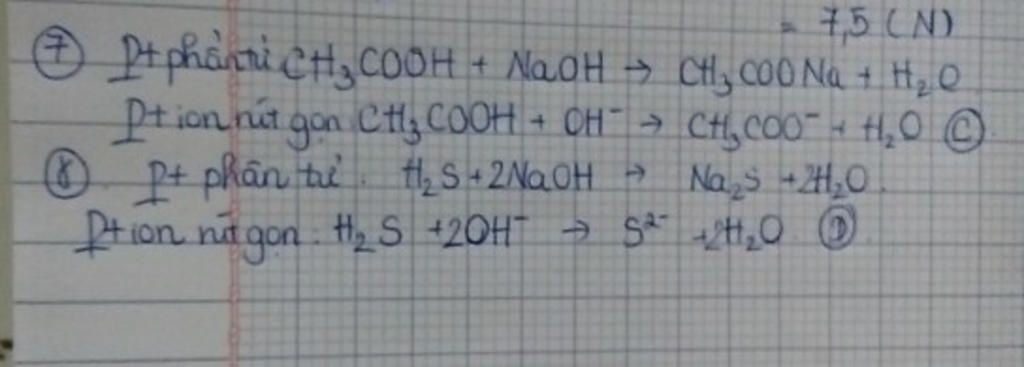 = 7,5 (N)
⑦ Pt phân tử CH₃COOH + NaOH → CH₃COONa + H₂O
Pt ion rút gọn: CH₃COOH + OH⁻ → CH₃COO⁻ + H₂O Ⓒ
⑧ Pt phân tử: H₂S + 2NaOH → Na₂S + 2H₂O.
Pt ion rút gọn: H₂S + 2OH⁻ → S²⁻ + 2H₂O Ⓓ